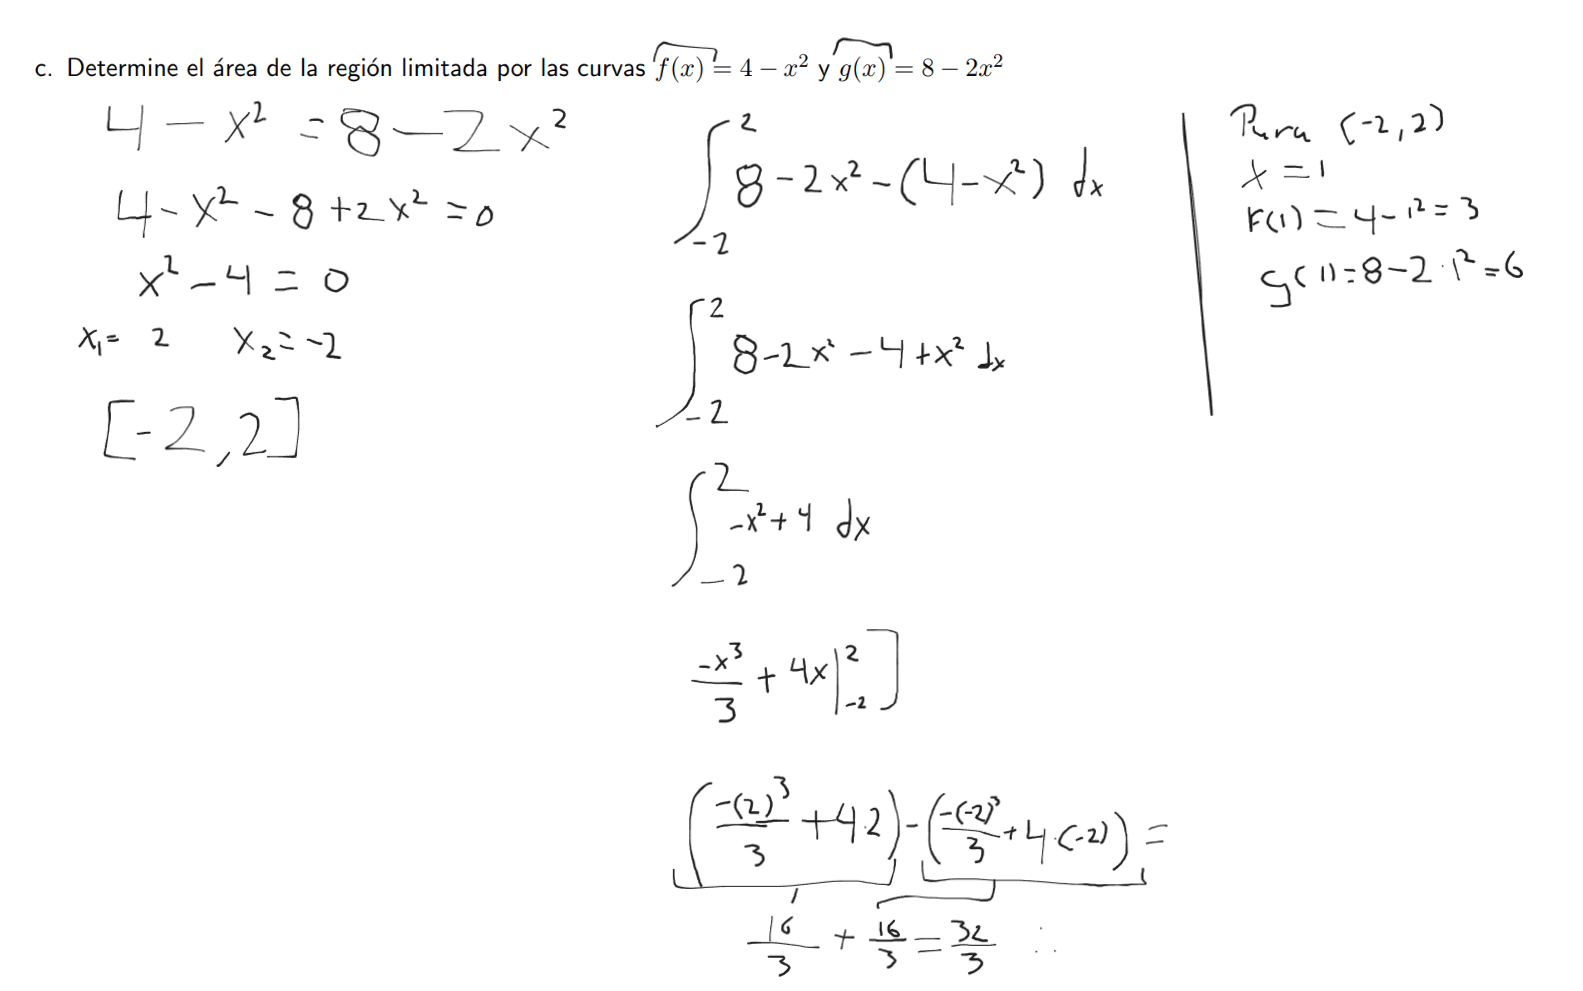 c. Determine el área de la región limitada por las curvas f(x) = 4 − x² y g(x) = 8 − 2x²
4 − x² = 8 − 2x²
4 − x² − 8 + 2x² = 0
x² − 4 = 0
x₁ = 2   x₂ = −2
[−2, 2]
∫₋₂² 8 − 2x² − (4 − x²) dx
∫₋₂² 8 − 2x² − 4 + x² dx
∫₋₂² −x² + 4 dx
−x³/3 + 4x |₋₂² ]
(−(2)³/3 + 4·2) − (−(−2)³/3 + 4·(−2)) =
16/3 + 16/3 = 32/3 ∴
Para (−2, 2)
x = 1
F(1) = 4 − 1² = 3
g(1) = 8 − 2·1² = 6